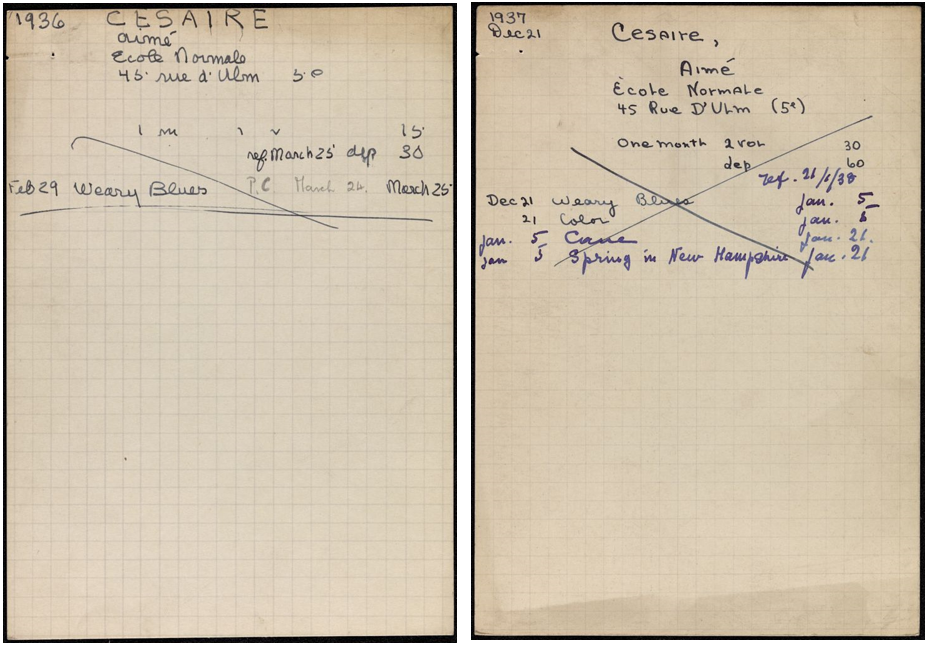 1936 CESAIRE
Aimé
Ecole Normale
45 rue d'Ulm 5e
1 m 1 v 15
ref March 25 dep 30
Feb 29 Weary Blues P.C. March 24. March 25
1937
Dec 21
Cesaire,
Aimé
Ècole Normale
45 Rue D'Ulm (5e)
One month 2 vol 30
dep 60
ref. 21/1/38
Dec 21 Weary Blues Jan. 5
21 Color Jan. 5
Jan. 5 Cane Jan. 21.
Jan 5 Spring in New Hampshire Jan. 21